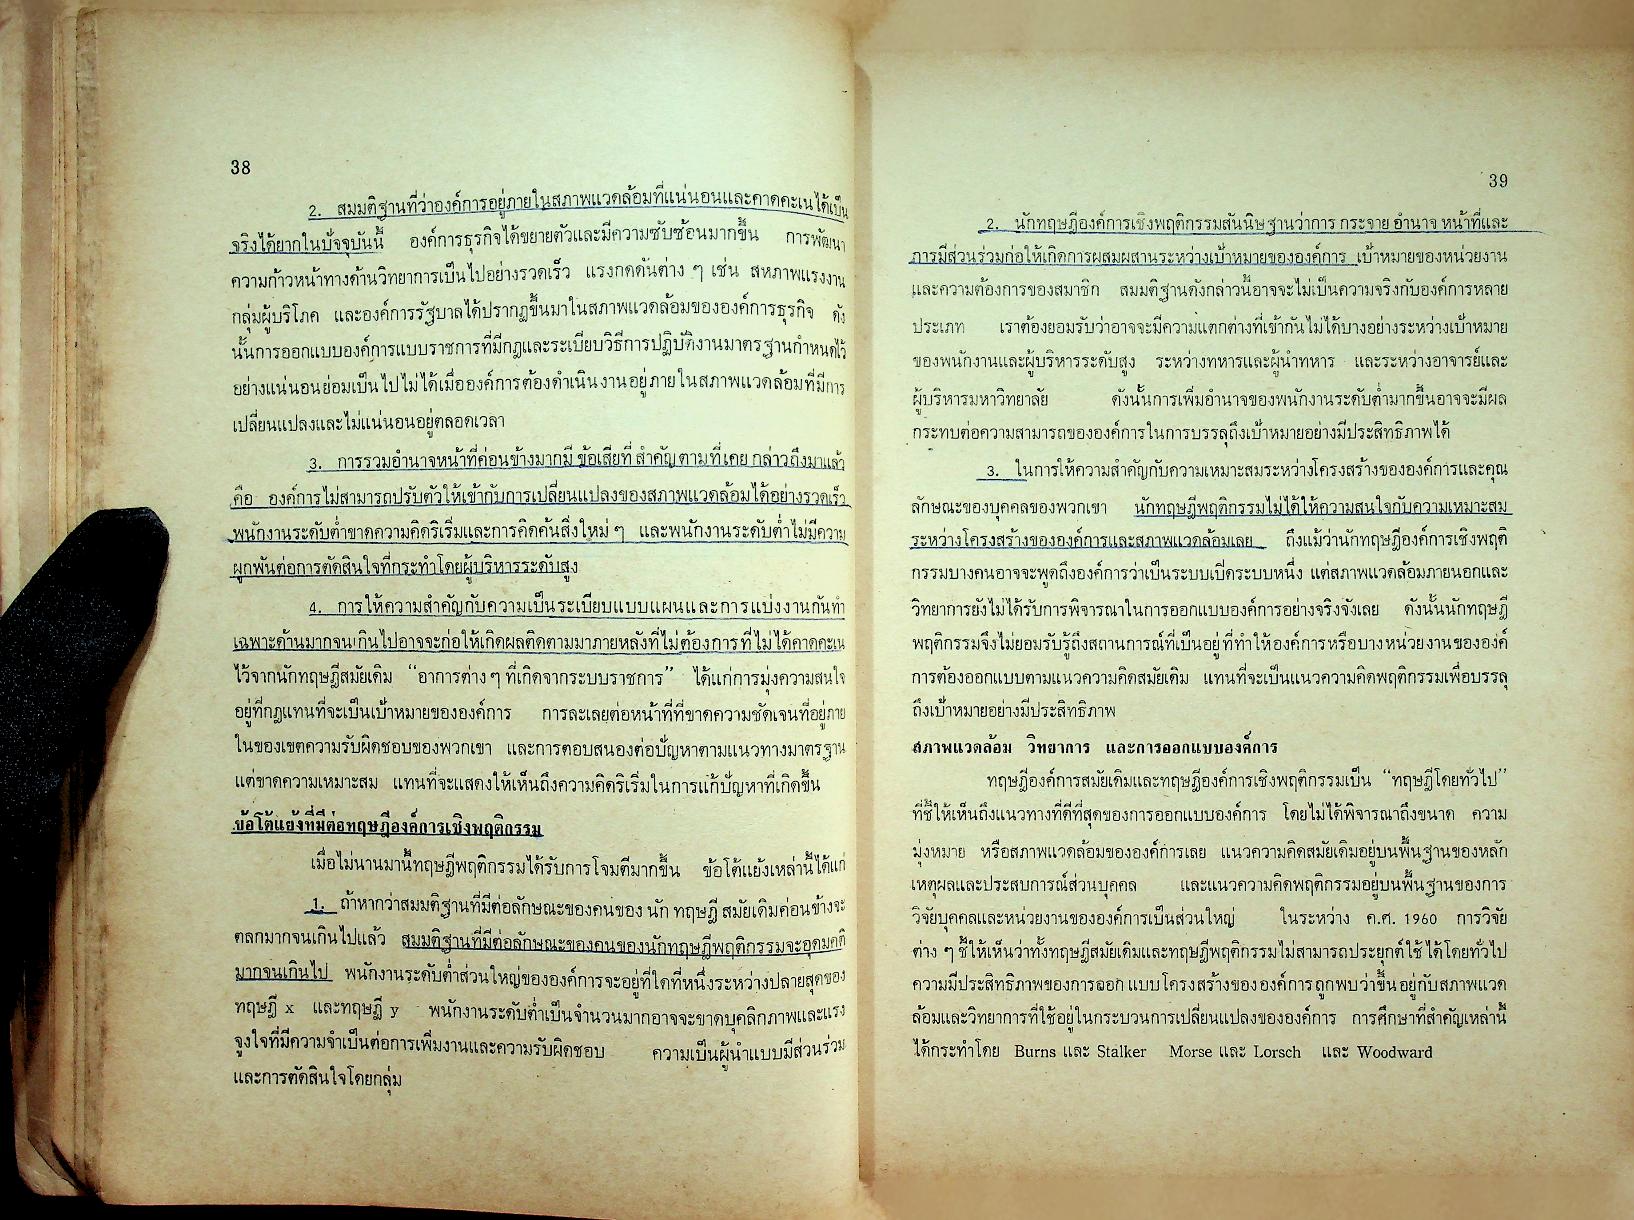 38
2. สมมติฐานที่ว่าองค์การอยู่ภายในสภาพแวดล้อมที่แน่นอนและคาดคะเนได้เป็น
จริงได้ยากในปัจจุบันนี้ องค์การธุรกิจได้ขยายตัวและมีความซับซ้อนมากขึ้น การพัฒนา
ความก้าวหน้าทางด้านวิทยาการเป็นไปอย่างรวดเร็ว แรงกดดันต่าง ๆ เช่น สหภาพแรงงาน
กลุ่มผู้บริโภค และองค์การรัฐบาลได้ปรากฏขึ้นมาในสภาพแวดล้อมขององค์การธุรกิจ ดัง
นั้นการออกแบบองค์การแบบราชการที่มีกฎและระเบียบวิธีการปฏิบัติงานมาตรฐานกำหนดไว้
อย่างแน่นอนย่อมเป็นไปไม่ได้เมื่อองค์การต้องดำเนินงานอยู่ภายในสภาพแวดล้อมที่มีการ
เปลี่ยนแปลงและไม่แน่นอนอยู่ตลอดเวลา
3. การรวมอำนาจหน้าที่ค่อนข้างมากมี ข้อเสียที่ สำคัญ ตามที่ เคย กล่าวถึงมาแล้ว
คือ องค์การไม่สามารถปรับตัวให้เข้ากับการเปลี่ยนแปลงของสภาพแวดล้อมได้อย่างรวดเร็ว
พนักงานระดับต่ำขาดความคิดริเริ่มและการคิดค้นสิ่งใหม่ ๆ และพนักงานระดับต่ำไม่มีความ
ผูกพันต่อการตัดสินใจที่กระทำโดยผู้บริหารระดับสูง
4. การให้ความสำคัญกับความเป็นระเบียบแบบแผนและการแบ่งงานกันทำ
เฉพาะด้านมากจนเกินไปอาจจะก่อให้เกิดผลติดตามมาภายหลังที่ไม่ต้องการที่ไม่ได้คาดคะเน
ไว้จากนักทฤษฎีสมัยเดิม “อาการต่าง ๆ ที่เกิดจากระบบราชการ” ได้แก่การมุ่งความสนใจ
อยู่ที่กฎแทนที่จะเป็นเป้าหมายขององค์การ การละเลยต่อหน้าที่ที่ขาดความชัดเจนที่อยู่ภาย
ในของเขตความรับผิดชอบของพวกเขา และการตอบสนองต่อปัญหาตามแนวทางมาตรฐาน
แต่ขาดความเหมาะสม แทนที่จะแสดงให้เห็นถึงความคิดริเริ่มในการแก้ปัญหาที่เกิดขึ้น
ข้อโต้แย้งที่มีต่อทฤษฎีองค์การเชิงพฤติกรรม
เมื่อไม่นานมานี้ทฤษฎีพฤติกรรมได้รับการโจมตีมากขึ้น ข้อโต้แย้งเหล่านี้ได้แก่
1. ถ้าหากว่าสมมติฐานที่มีต่อลักษณะของคนของ นัก ทฤษฎี สมัยเดิมค่อนข้างจะ
ตลกมากจนเกินไปแล้ว สมมติฐานที่มีต่อลักษณะของคนของนักทฤษฎีพฤติกรรมจะอุดมคติ
มากจนเกินไป พนักงานระดับต่ำส่วนใหญ่ขององค์การจะอยู่ที่ใดที่หนึ่งระหว่างปลายสุดของ
ทฤษฎี x และทฤษฎี y พนักงานระดับต่ำเป็นจำนวนมากอาจจะขาดบุคลิกภาพและแรง
จูงใจที่มีความจำเป็นต่อการเพิ่มงานและความรับผิดชอบ ความเป็นผู้นำแบบมีส่วนร่วม
และการตัดสินใจโดยกลุ่ม
39
2. นักทฤษฎีองค์การเชิงพฤติกรรมสันนิษฐานว่าการ กระจาย อำนาจ หน้าที่และ
การมีส่วนร่วมก่อให้เกิดการผสมผสานระหว่างเป้าหมายขององค์การ เป้าหมายของหน่วยงาน
และความต้องการของสมาชิก สมมติฐานดังกล่าวนี้อาจจะไม่เป็นความจริงกับองค์การหลาย
ประเภท เราต้องยอมรับว่าอาจจะมีความแตกต่างที่เข้ากันไม่ได้บางอย่างระหว่างเป้าหมาย
ของพนักงานและผู้บริหารระดับสูง ระหว่างทหารและผู้นำทหาร และระหว่างอาจารย์และ
ผู้บริหารมหาวิทยาลัย ดังนั้นการเพิ่มอำนาจของพนักงานระดับต่ำมากขึ้นอาจจะมีผล
กระทบต่อความสามารถขององค์การในการบรรลุถึงเป้าหมายอย่างมีประสิทธิภาพได้
3. ในการให้ความสำคัญกับความเหมาะสมระหว่างโครงสร้างขององค์การและคุณ
ลักษณะของบุคคลของพวกเขา นักทฤษฎีพฤติกรรมไม่ได้ให้ความสนใจกับความเหมาะสม
ระหว่างโครงสร้างขององค์การและสภาพแวดล้อมเลย ถึงแม้ว่านักทฤษฎีองค์การเชิงพฤติ
กรรมบางคนอาจจะพูดถึงองค์การว่าเป็นระบบเปิดระบบหนึ่ง แต่สภาพแวดล้อมภายนอกและ
วิทยาการยังไม่ได้รับการพิจารณาในการออกแบบองค์การอย่างจริงจังเลย ดังนั้นนักทฤษฎี
พฤติกรรมจึงไม่ยอมรับรู้ถึงสถานการณ์ที่เป็นอยู่ที่ทำให้องค์การหรือบางหน่วยงานขององค์
การต้องออกแบบตามแนวความคิดสมัยเดิม แทนที่จะเป็นแนวความคิดพฤติกรรมเพื่อบรรลุ
ถึงเป้าหมายอย่างมีประสิทธิภาพ
สภาพแวดล้อม วิทยาการ และการออกแบบองค์การ
ทฤษฎีองค์การสมัยเดิมและทฤษฎีองค์การเชิงพฤติกรรมเป็น “ทฤษฎีโดยทั่วไป”
ที่ชี้ให้เห็นถึงแนวทางที่ดีที่สุดของการออกแบบองค์การ โดยไม่ได้พิจารณาถึงขนาด ความ
มุ่งหมาย หรือสภาพแวดล้อมขององค์การเลย แนวความคิดสมัยเดิมอยู่บนพื้นฐานของหลัก
เหตุผลและประสบการณ์ส่วนบุคคล และแนวความคิดพฤติกรรมอยู่บนพื้นฐานของการ
วิจัยบุคคลและหน่วยงานขององค์การเป็นส่วนใหญ่ ในระหว่าง ค.ศ. 1960 การวิจัย
ต่าง ๆ ชี้ให้เห็นว่าทั้งทฤษฎีสมัยเดิมและทฤษฎีพฤติกรรมไม่สามารถประยุกต์ใช้ได้โดยทั่วไป
ความมีประสิทธิภาพของการออก แบบโครงสร้างขององค์การถูกพบว่าขึ้นอยู่กับสภาพแวด
ล้อมและวิทยาการที่ใช้อยู่ในกระบวนการเปลี่ยนแปลงขององค์การ การศึกษาที่สำคัญเหล่านี้
ได้กระทำโดย Burns และ Stalker Morse และ Lorsch และ Woodward